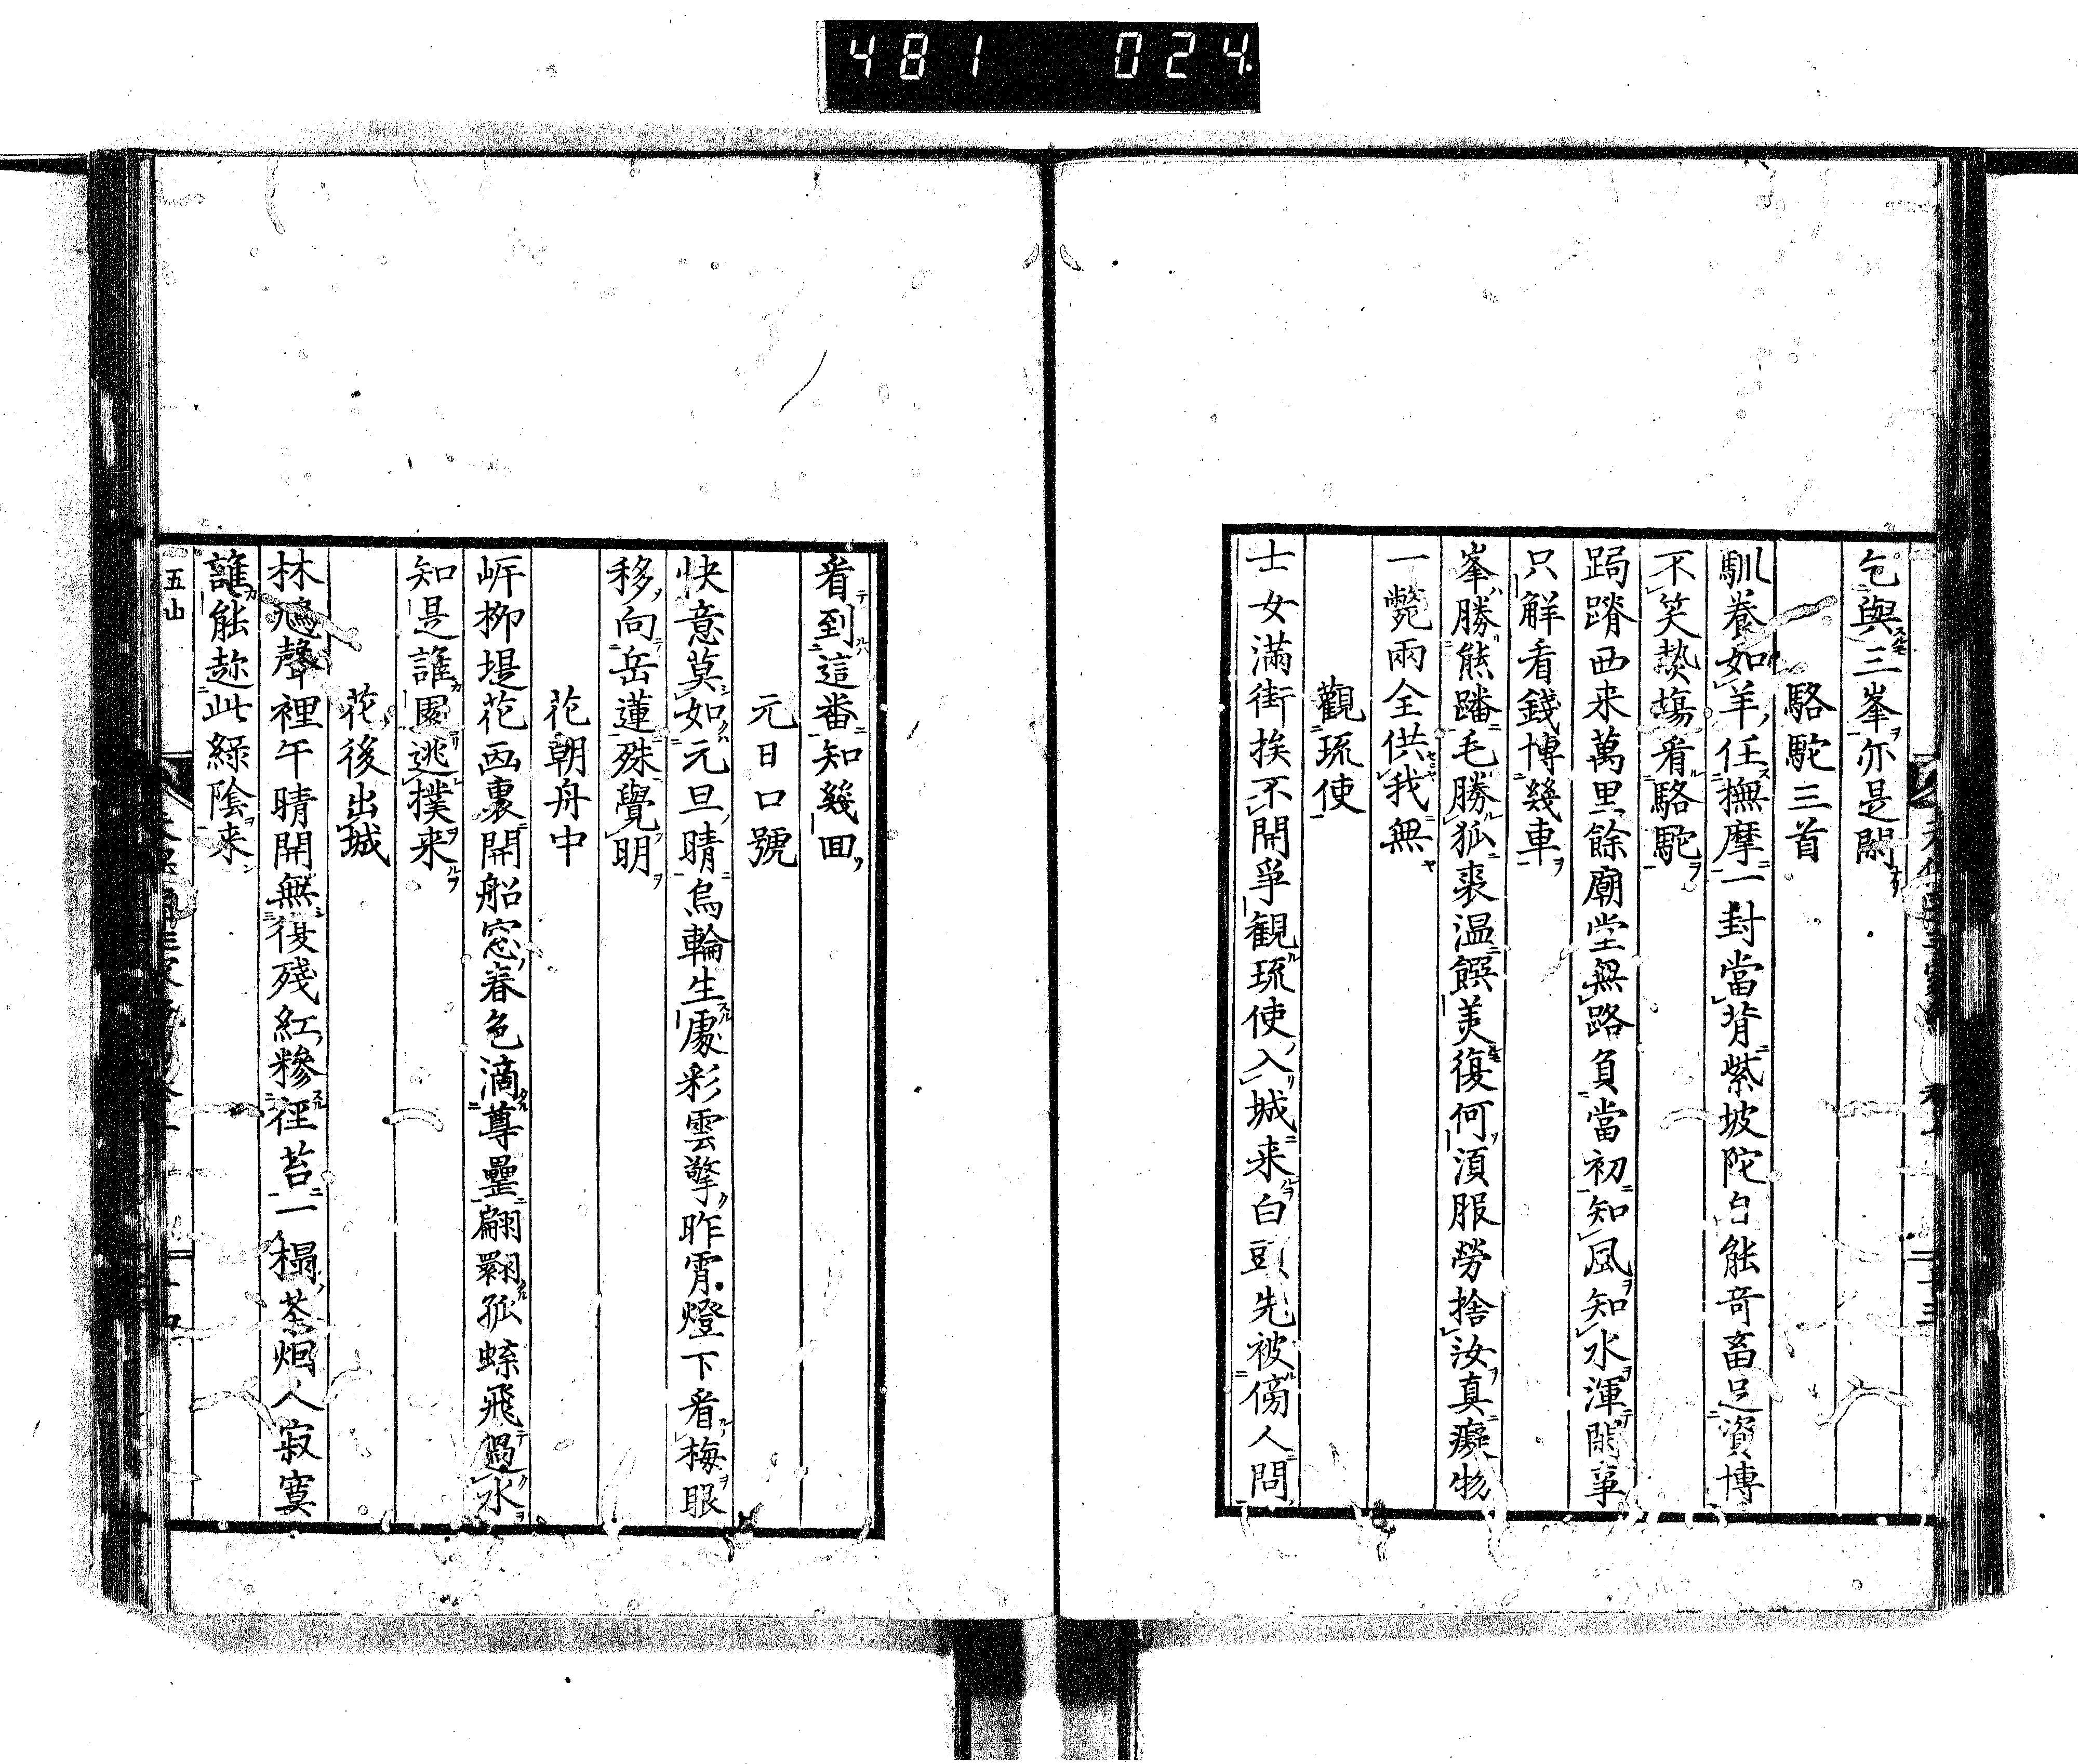 481 024
乞與三峯亦是閑
駱駝三首
馴養如羊任撫摩一封當背紫坡陀自能奇畜足資博
不笑𫙎塲看駱駝
跼蹐西来萬里餘廟堂無路負當初知風知水渾閑事
只解看錢博幾車
峯勝熊蹯毛勝狐裘温饌美復何須服勞捨汝真癡物
一斃兩全供我無
觀琉使
士女滿街挨不開爭觀琉使入城来白頭先被傍人問
看到這番知幾回
元日口號
快意莫如元旦晴烏輪生處彩雲擎昨宵燈下看梅眼
移向岳蓮殊覺明
花朝舟中
岍柳堤花西裏開船窓春色滴尊罍翩翾孤蝶飛過水
知是誰園逃撲来
花後出城
林鳩聲裡午晴開無復殘紅糝徑苔一榻茶烟人寂寞
誰能趂此綠陰来
五山